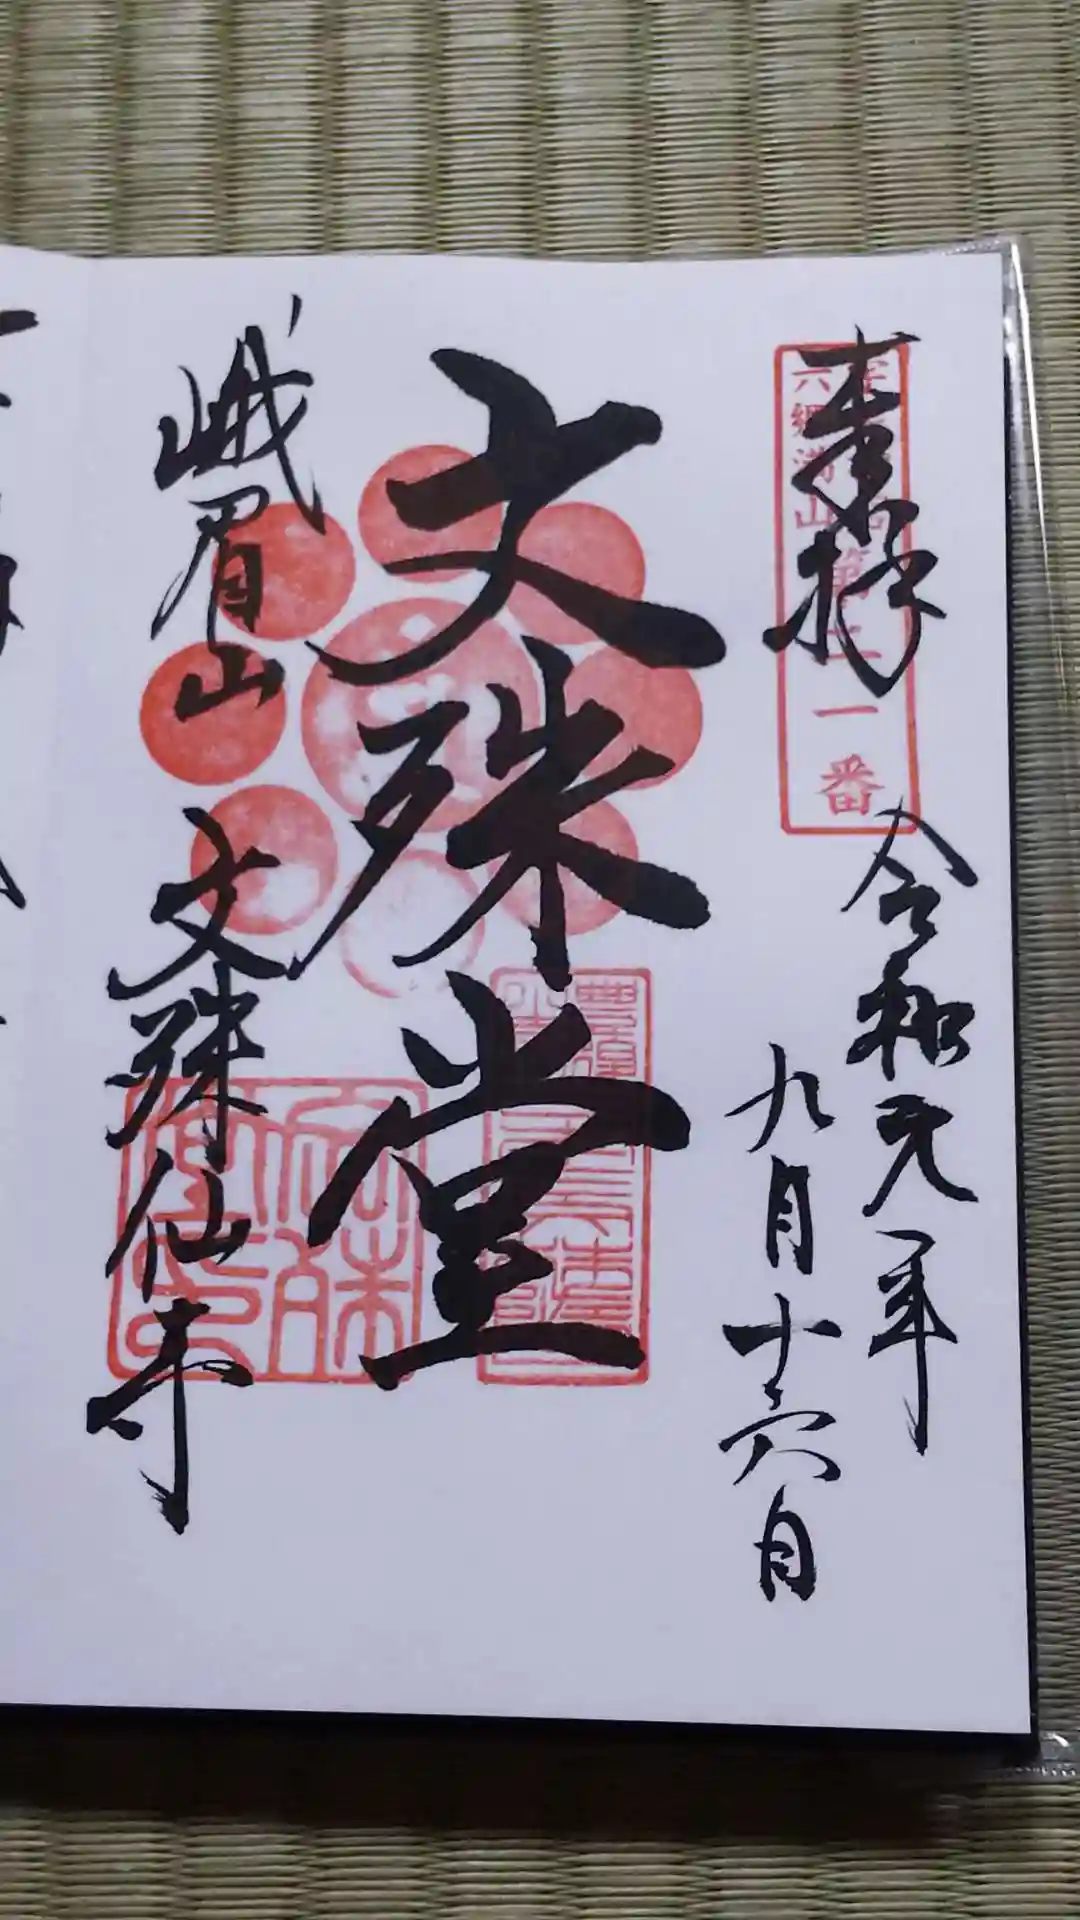 奉拝
六郷満山
第二一番
令和元年
九月十六日
文殊堂
峨眉山
文殊仙寺